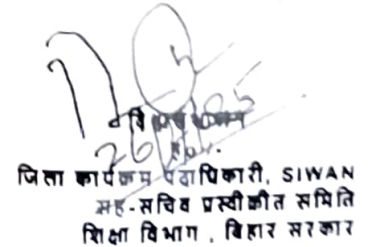 जिला कार्यक्रम पदाधिकारी, SIWAN
सह-सचिव प्रस्वीकृति समिति
शिक्षा विभाग , बिहार सरकार